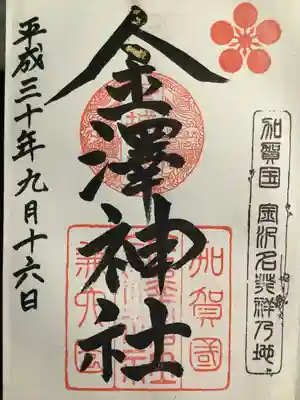 加賀国 金沢名発祥乃地
金澤神社
加賀國
平成三十年九月十六日